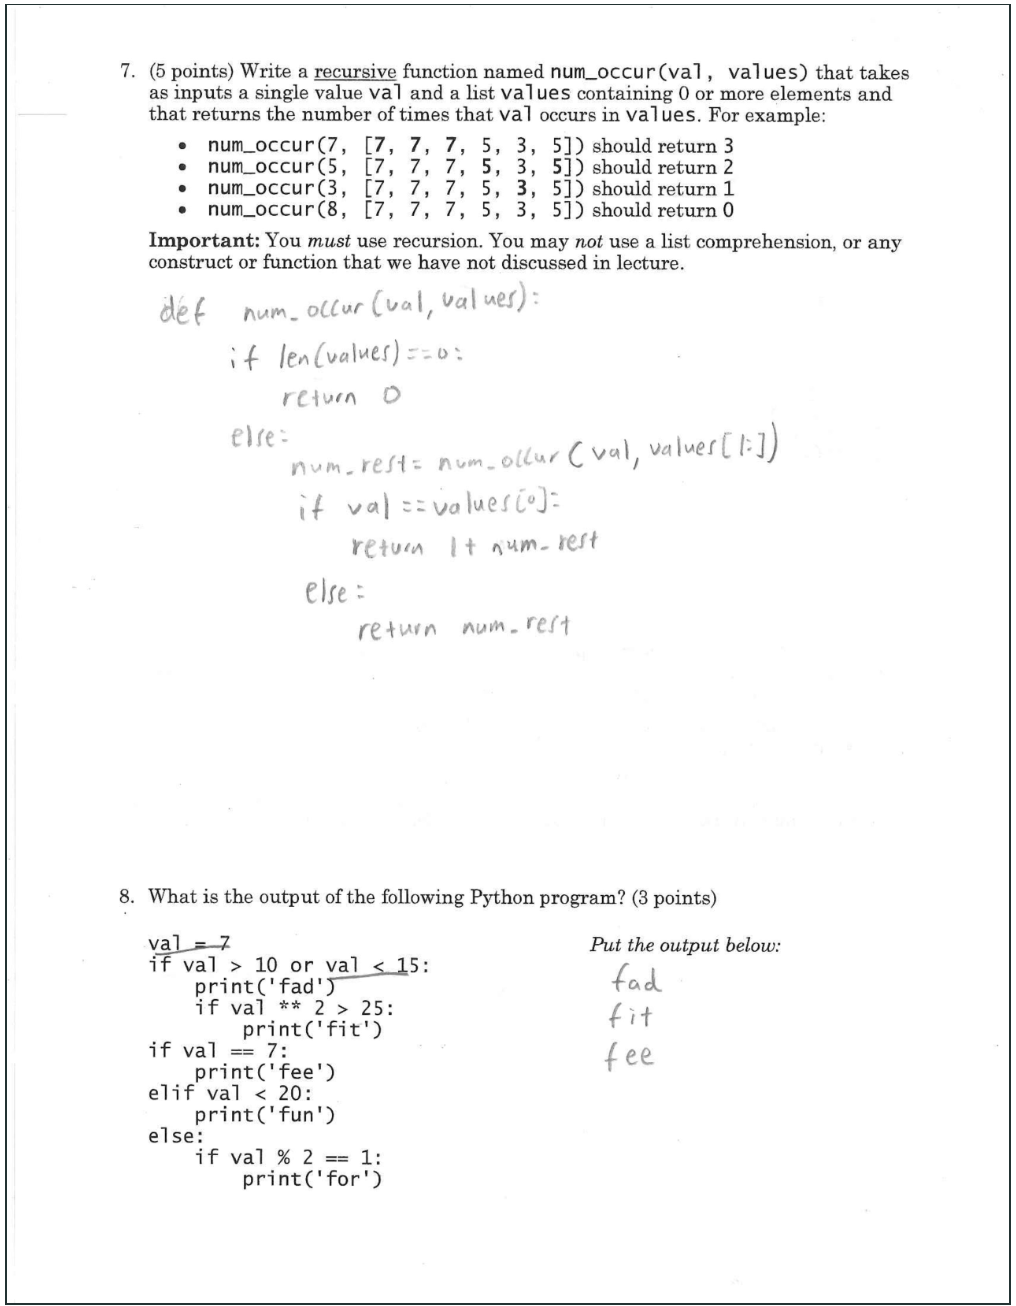 7. (5 points) Write a recursive function named num_occur(val, values) that takes
as inputs a single value val and a list values containing 0 or more elements and
that returns the number of times that val occurs in values. For example:
• num_occur(7, [7, 7, 7, 5, 3, 5]) should return 3
• num_occur(5, [7, 7, 7, 5, 3, 5]) should return 2
• num_occur(3, [7, 7, 7, 5, 3, 5]) should return 1
• num_occur(8, [7, 7, 7, 5, 3, 5]) should return 0
Important: You must use recursion. You may not use a list comprehension, or any
construct or function that we have not discussed in lecture.
def num_occur(val, values):
if len(values)==0:
return 0
else:
num_rest= num_occur(val, values[1:])
if val ==values[0]:
return 1+ num_rest
else:
return num_rest
8. What is the output of the following Python program? (3 points)
val = 7 Put the output below:
if val > 10 or val < 15: fad
print('fad')
if val ** 2 > 25: fit
print('fit')
if val == 7: fee
print('fee')
elif val < 20:
print('fun')
else:
if val % 2 == 1:
print('for')